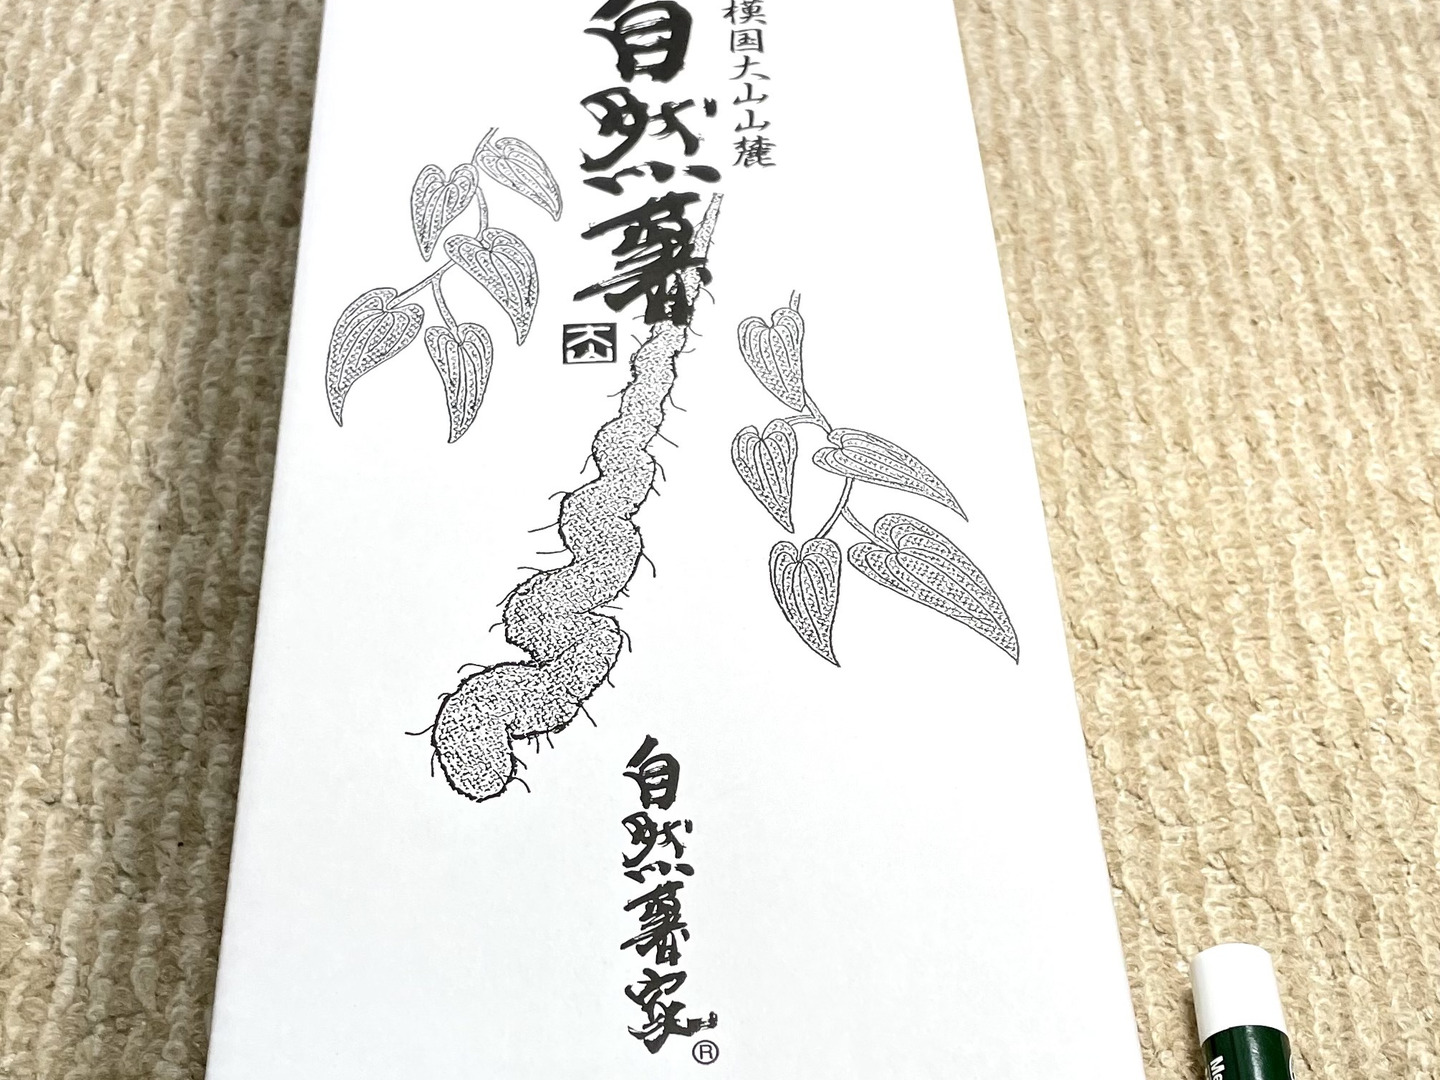 模国大山山麓
自然薯
大山
自然薯家
®
Me